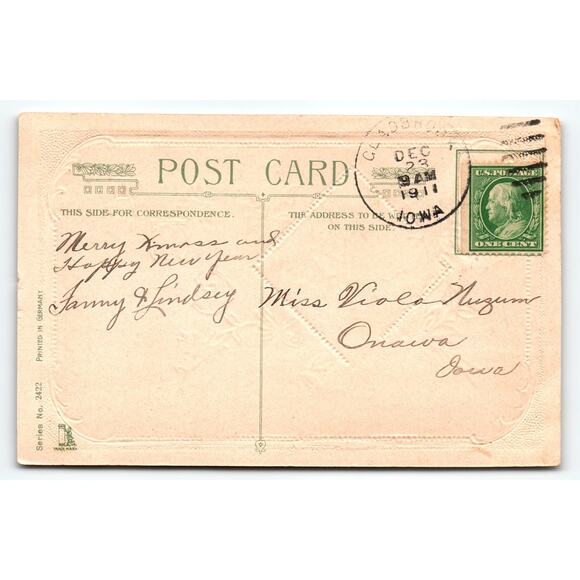 POST CARD
DEC
23
9 AM
1911
IOWA
U.S. POSTAGE
ONE CENT
THIS SIDE FOR CORRESPONDENCE.
THE ADDRESS TO BE
ON THIS SIDE.
Merry Xmass and
Happy New Year
Fanny & Lindsey
Miss Viola Nuzum
Onawa
Iowa
Series No. 2422 PRINTED IN GERMANY.
TRADE MARK